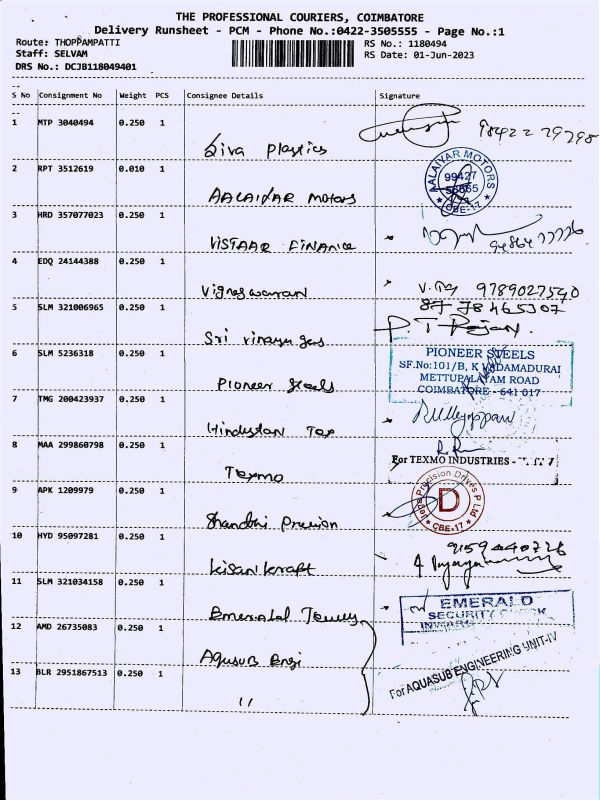 THE PROFESSIONAL COURIERS, COIMBATORE
Delivery Runsheet - PCM - Phone No.:0422-3505555 - Page No.:1
Route: THOPPAMPATTI RS No.: 1180494
Staff: SELVAM RS Date: 01-Jun-2023
DRS No.: DCJB118049401
S No Consignment No Weight PCS Consignee Details Signature
1 MTP 3040494 0.250 1
Siva Plastics
2 RPT 3512619 0.010 1
AALAIYAR MOTORS 99427
CBE-17
AALAIYAR Motors
3 HRD 357077023 0.250 1
VISTAAR FINANCE
4 EDQ 24144388 0.250 1
Vigneswaran 9789027540
5 SLM 321006965 0.250 1
Sri vinayaga P.T Rajan.
6 SLM 5236318 0.250 1
PIONEER STEELS
SF.No:101/B, K VADAMADURAI
METTUPALAYAM ROAD
COIMBATORE - 641 017
Pioneer Steels
7 TMG 200423937 0.250 1
Hindustan Tex
8 MAA 299860798 0.250 1
For TEXMO INDUSTRIES
Texmo
9 APK 1209979 0.250 1
Precision Drives P Ltd
D
CBE-17
Shandhi Precision
10 HYD 95097281 0.250 1
Kisan kraft
11 SLM 321034158 0.250 1
EMERALD
SECURITY CHECK
INWARD
Emerald
12 AMD 26735083 0.250 1
Aqusub Engi
13 BLR 2951867513 0.250 1
For AQUASUB ENGINEERING UNIT-IV
"